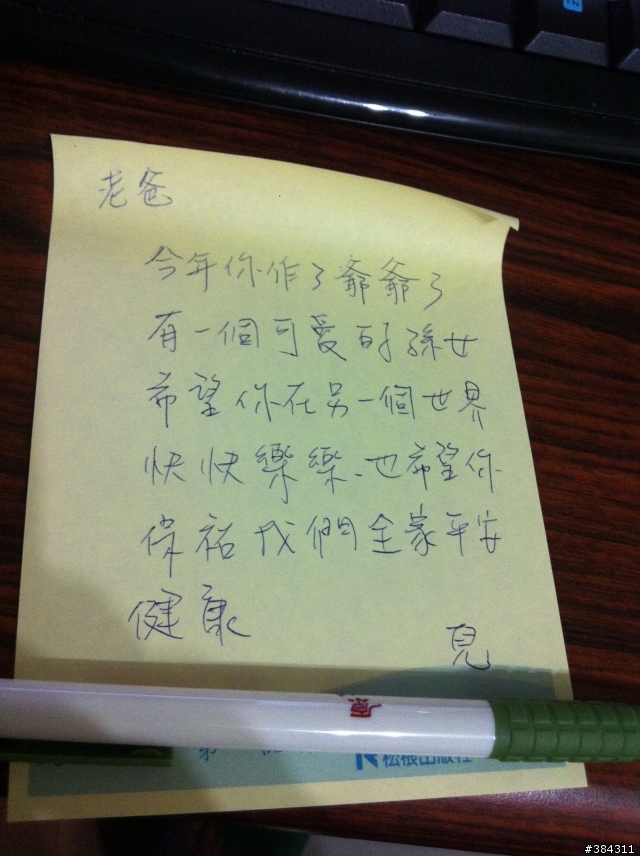 老爸
今年你作了爺爺了
有一個可愛的孫女
希望你在另一個世界
快快樂樂、也希望你
保祐我們全家平安
健康
兒
原
第
松根出版社
#384311